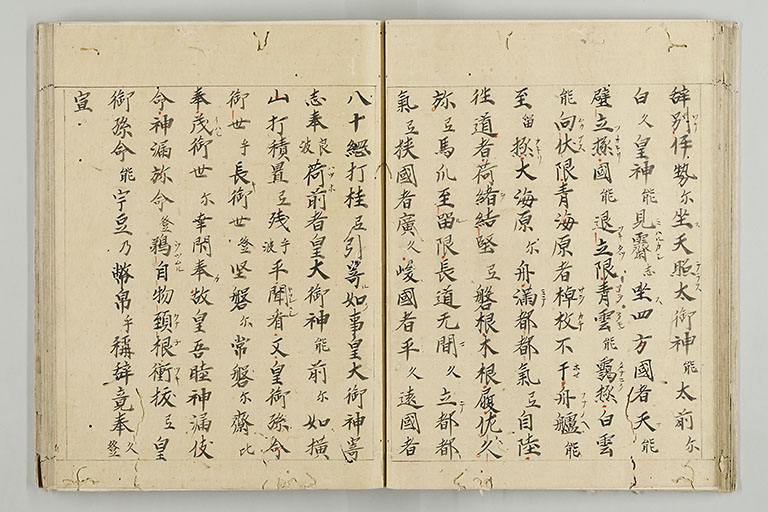 辞別伊勢尓坐天照太御神能太前尓
白久皇神能見霽志坐四方國者天能
壁立極國能退立限青雲能靄極白雲
能向伏限青海原者棹枚不干舟艫能
至留極大海原尓舟満都都氣弖自陸
往道者荷緒結堅弖磐根木根履佐久
弥弖馬爪至留限長道无間久立都都
氣弖狭國者廣久峻國者平久遠國者
八十綱打挂弖引寄如事皇大御神寄
志奉良波荷前者皇大御神能前尓如横
山打積置弖残乎波平聞看又皇御孫命
御世乎手長御世登堅磐尓常磐尓齋比
奉茂御世尓幸閇奉故皇吾睦神漏伎
命神漏弥命登鵜自物頚根衝抜弖皇
御孫命能宇豆乃幣帛乎稱辞竟奉久登
宣